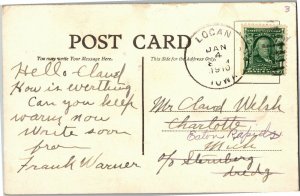 3
POST CARD
You may write your Message Here.
This Side for Address Only.
LOGAN
JAN
4
1910
IOWA
Hello Claud
How is everthing
Can you keep
warm now
Write soon
from
Frank Warner
Mr Claud Welsh
Charlotte
Eaton Rapids
Mich
c/o Sternburg
Dredg